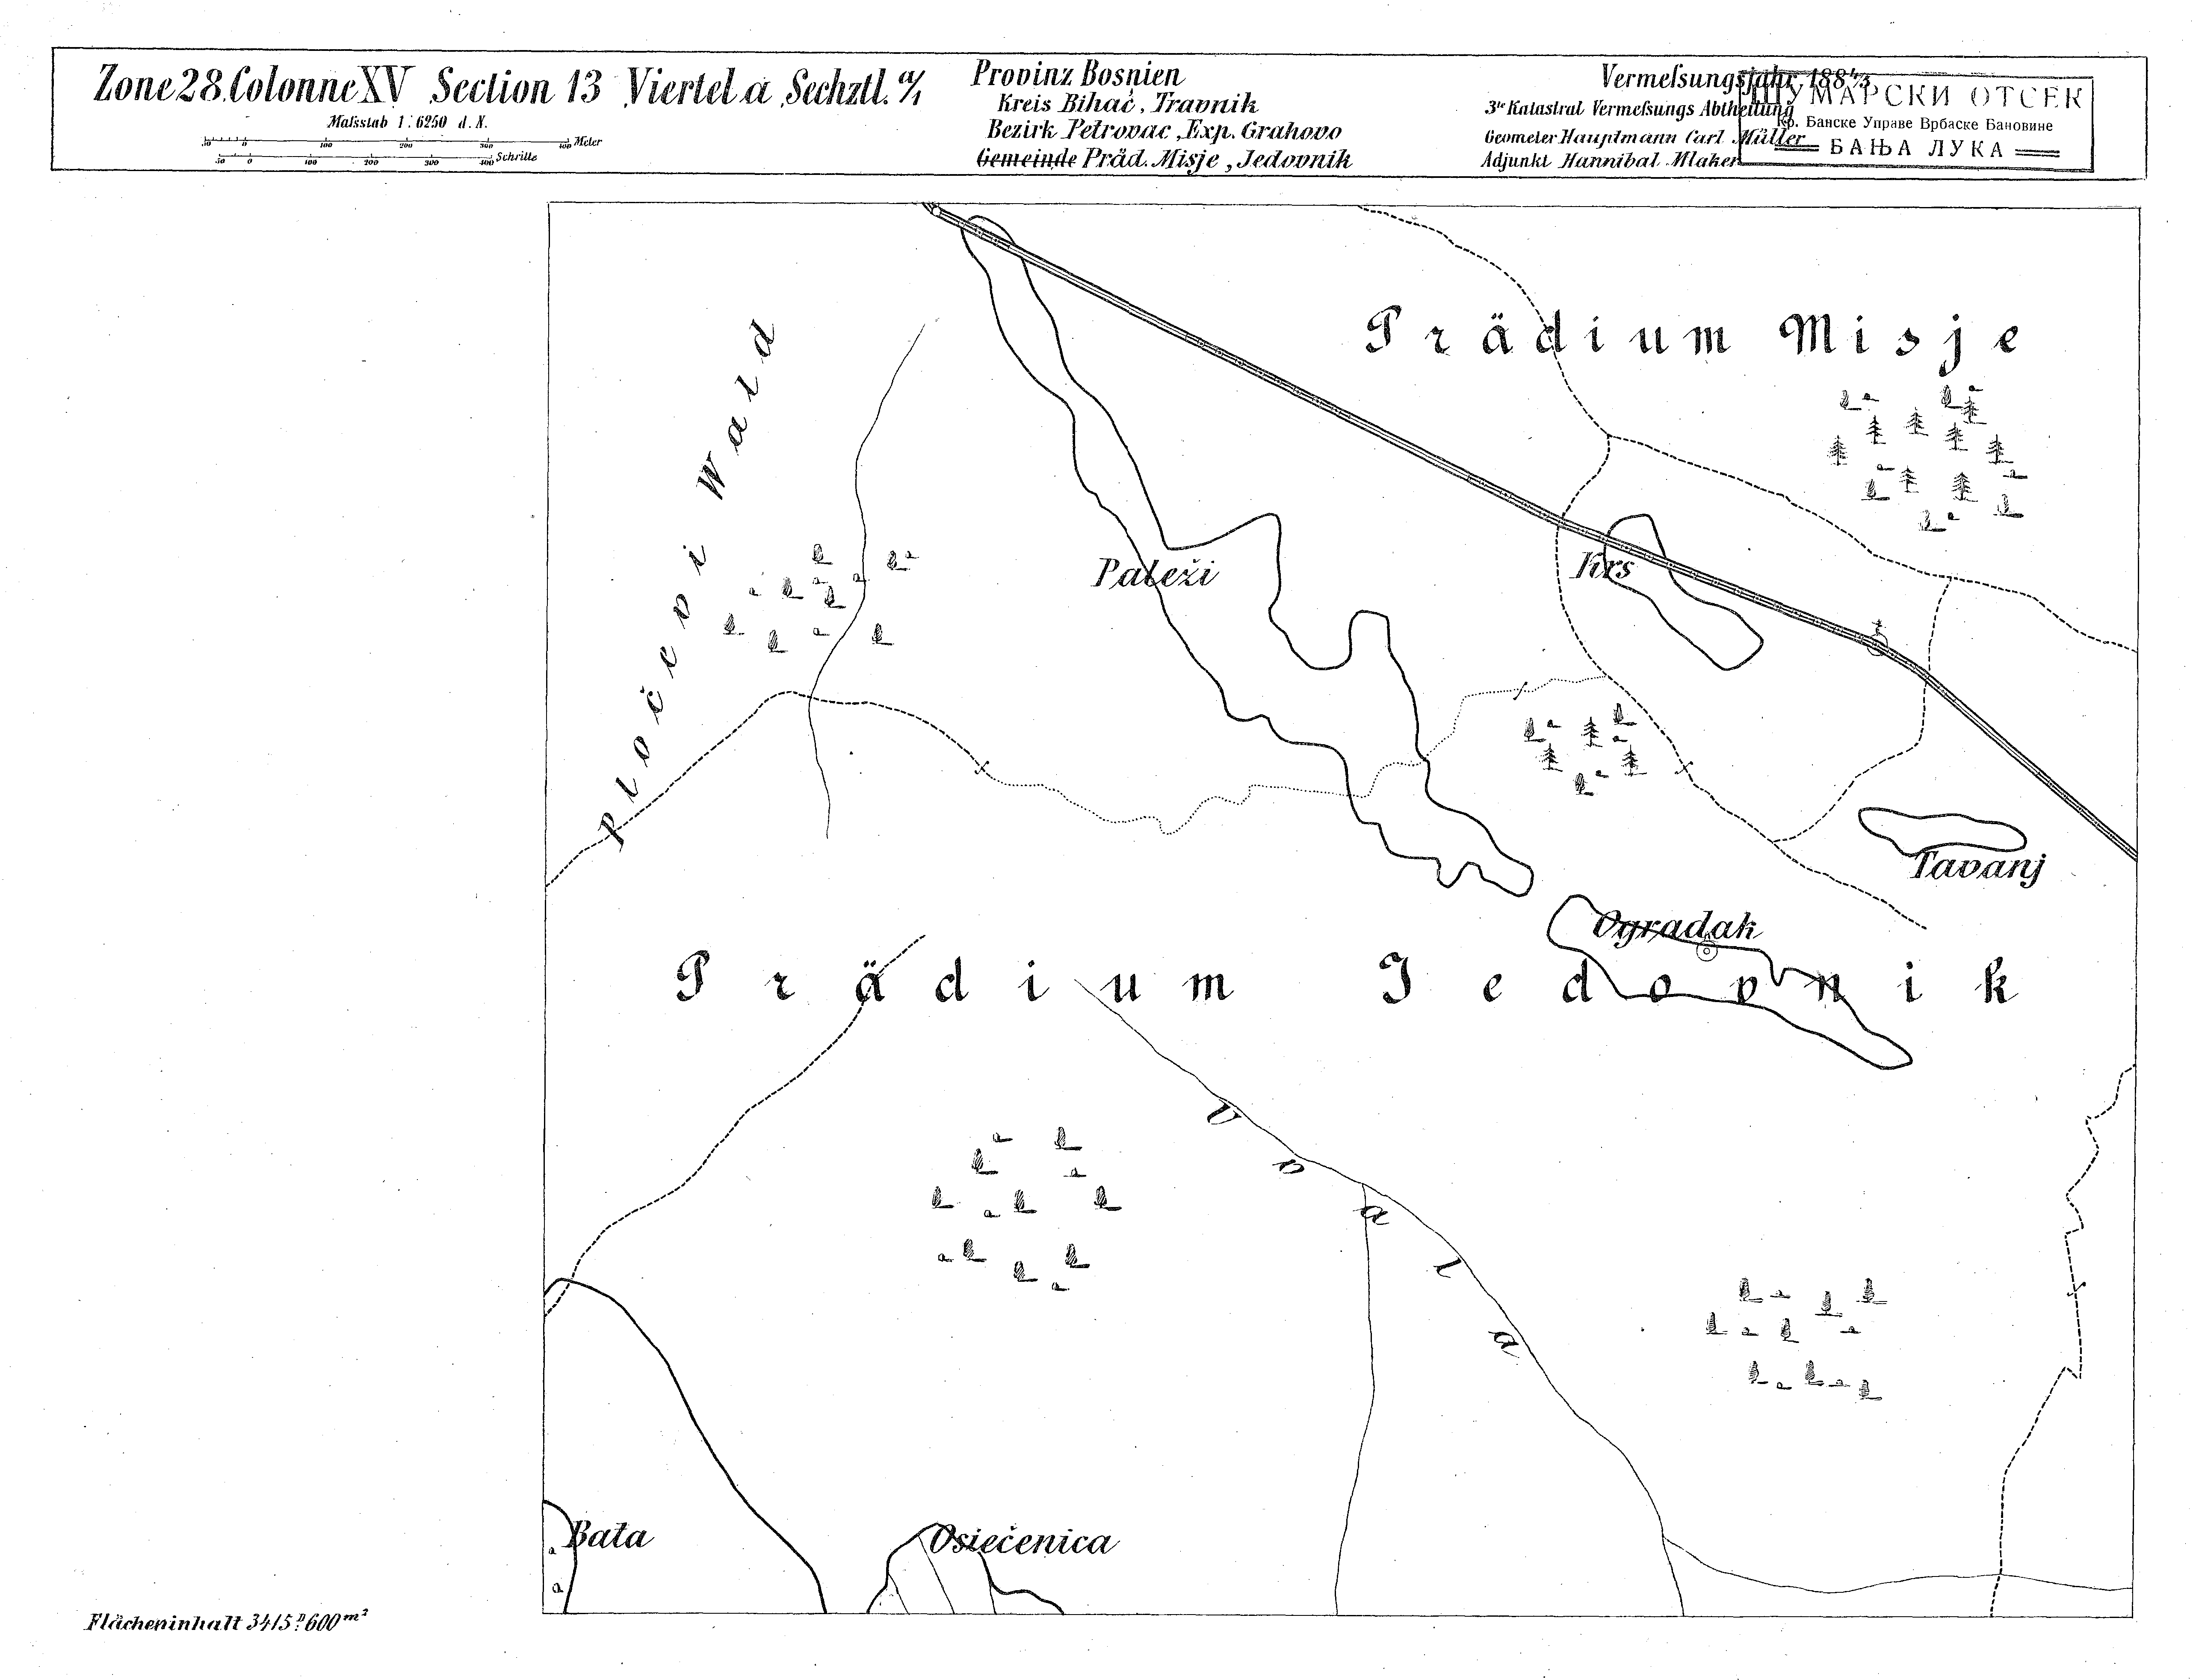 Zone 28. Colonne XV Section 13 Viertel a Sechztl. a/1
Maſsstab 1 : 6250 d. N.
50 0 100 200 300 400 Meter
50 0 100 200 300 400 Schritte
Provinz Bosnien
Kreis Bihać, Travnik
Bezirk Petrovac, Exp. Grahovo
Gemeinde Präd. Misje, Jedovnik
Vermeſsungsjahr 188
3te Katastral Vermeſsungs Abtheilung
Geometer Hauptmann Carl Müller
Adjunkt Hannibal Mlaker
ШУМАРСКИ ОТСЕК
Кр. Банске Управе Врбаске Бановине
БАЊА ЛУКА
Prädium Misje
Pločevi Wald
Paleži
Krs
Tavanj
Ogradak
Prädium Jedovnik
Uvala
Bata
Osiečenica
Flächeninhalt 3415 D 600 m²